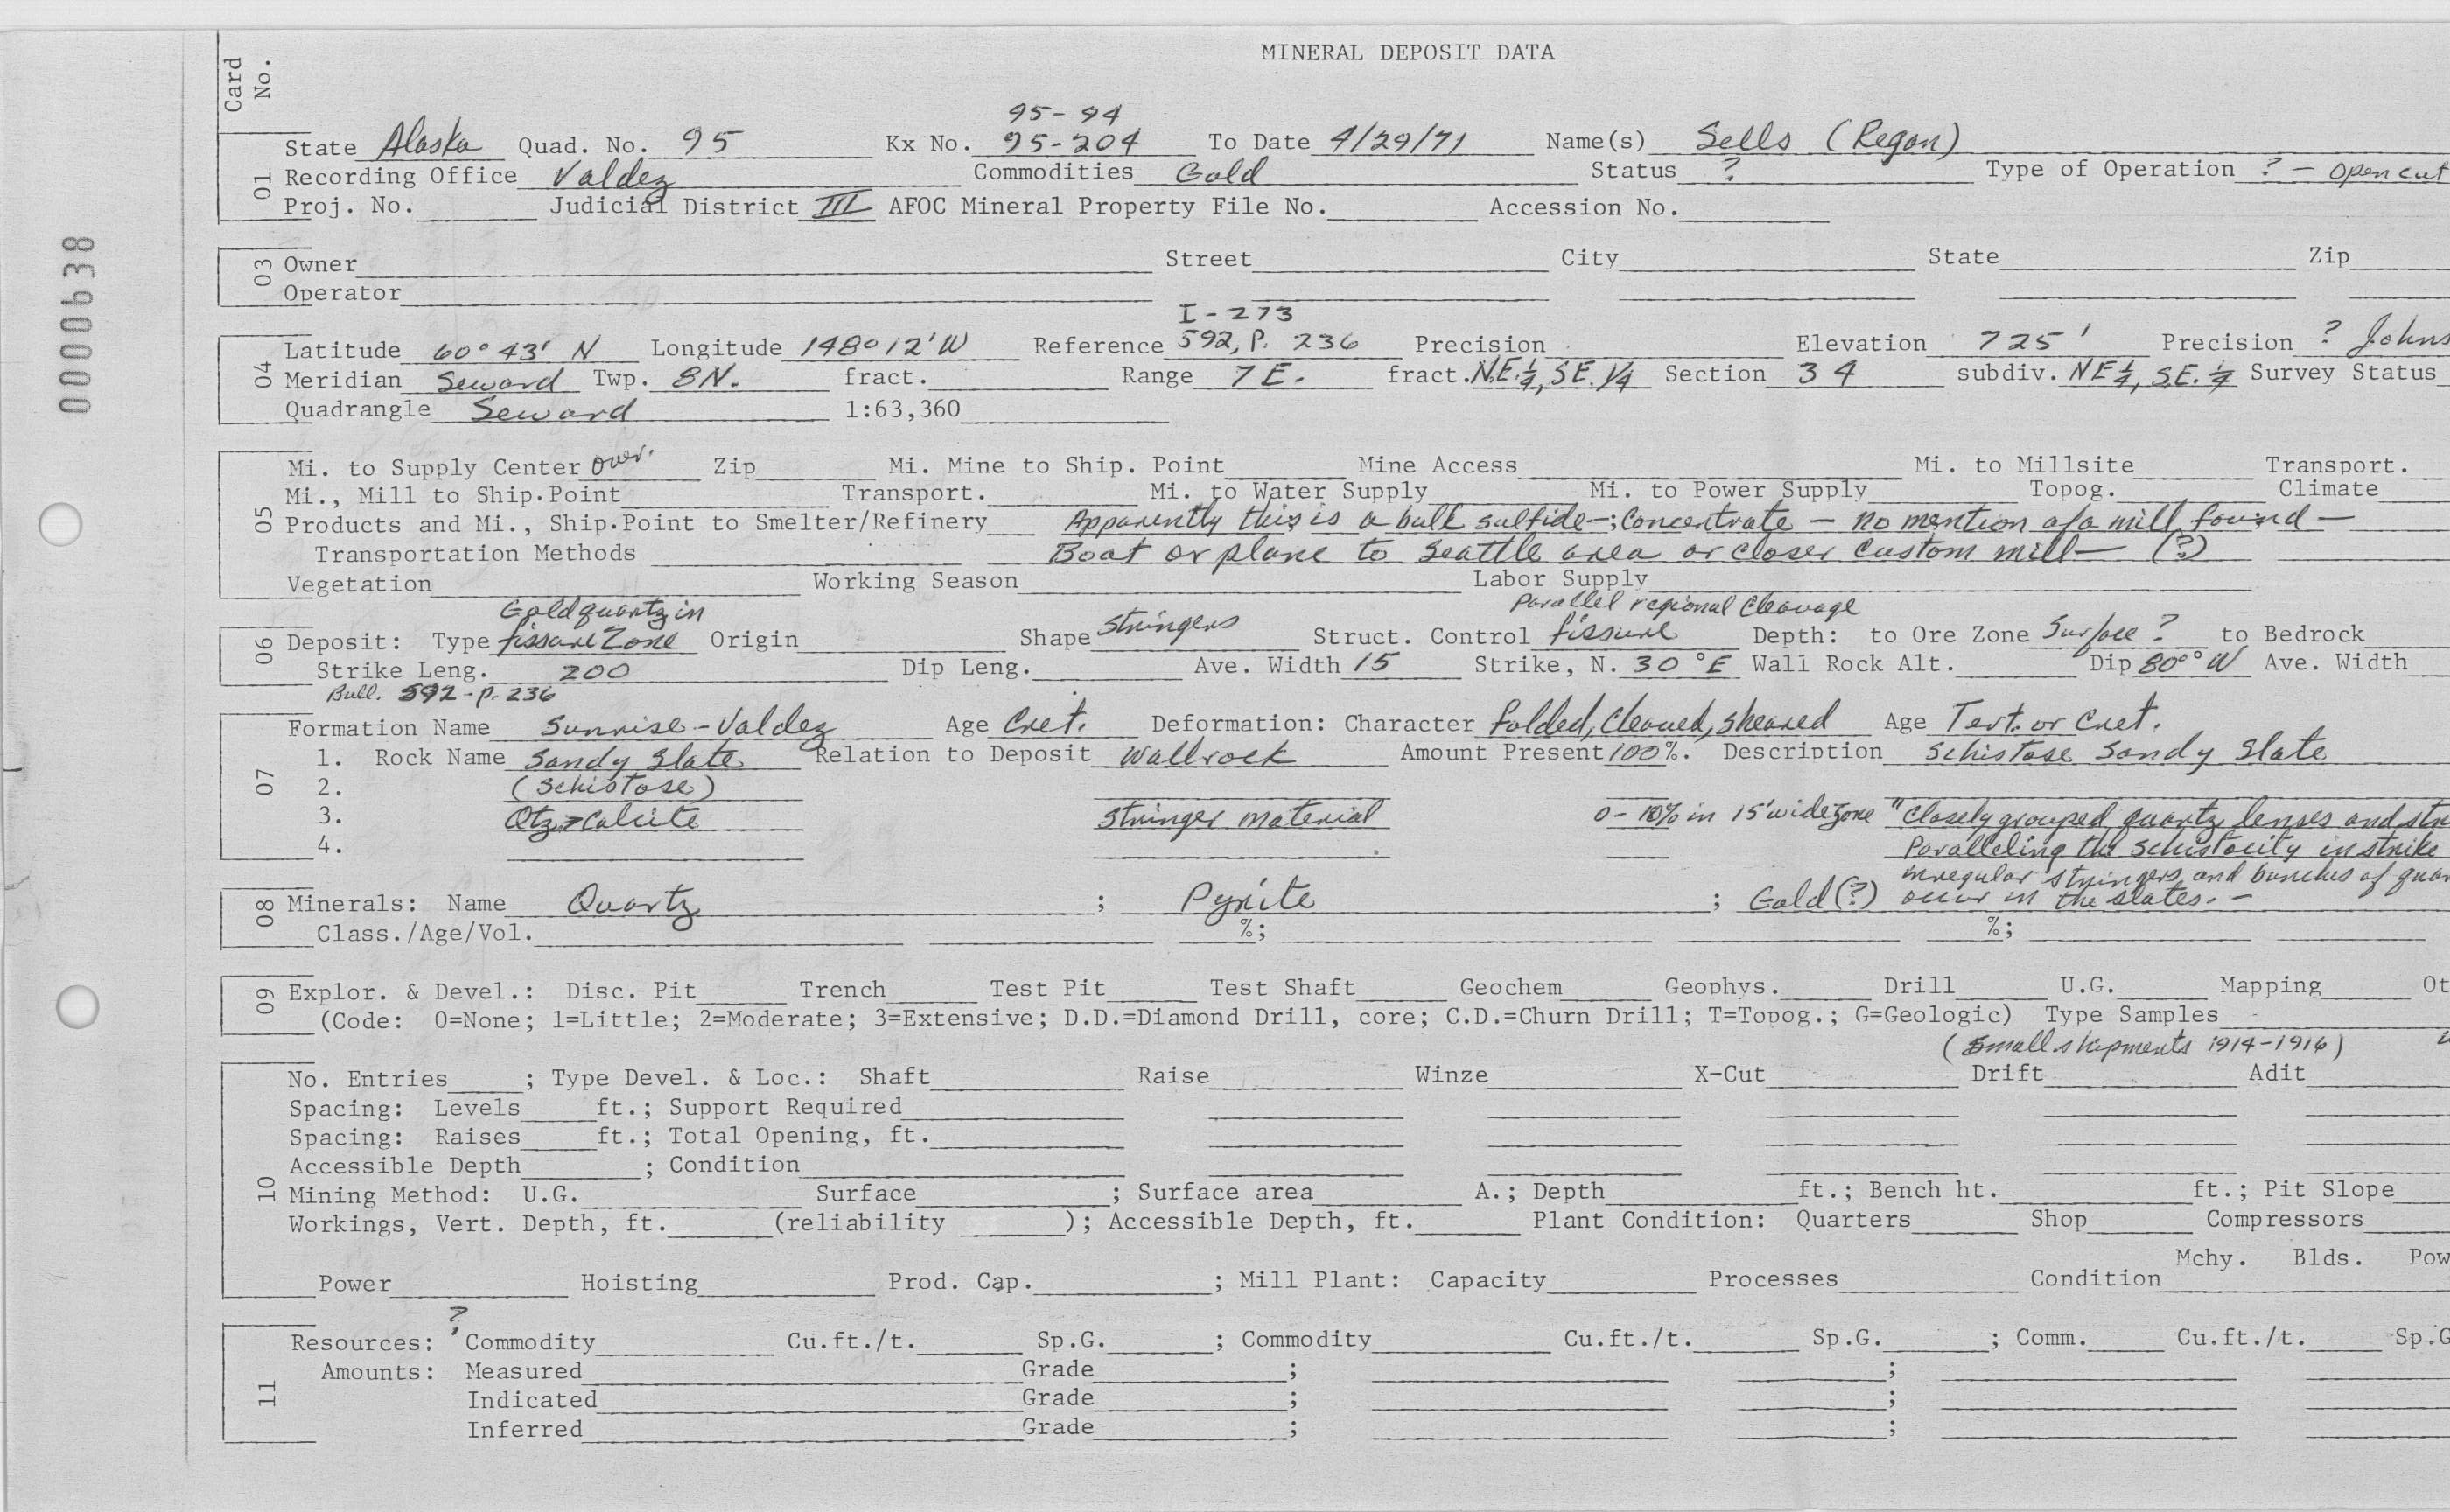 MINERAL DEPOSIT DATA
Card No.
95-94
01 State Alaska Quad. No. 95 Kx No. 95-204 To Date 4/29/71 Name(s) Sells (Regan)
Recording Office Valdez Commodities Gold Status ? Type of Operation ? - open cut
Proj. No. Judicial District III AFOC Mineral Property File No. Accession No.
0000638
03 Owner Street City State Zip
Operator
I-273
04 Latitude 60° 43' N Longitude 148° 12' W Reference 592, P. 236 Precision Elevation 725' Precision ? Johns
Meridian Seward Twp. 8N. fract. Range 7E. fract. N.E. 1/4, S.E. 1/4 Section 34 subdiv. NE 1/4, S.E. 1/4 Survey Status
Quadrangle Seward 1:63,360
05 Mi. to Supply Center over. Zip Mi. Mine to Ship. Point Mine Access Mi. to Millsite Transport.
Mi., Mill to Ship.Point Transport. Mi. to Water Supply Mi. to Power Supply Topog. Climate
Products and Mi., Ship.Point to Smelter/Refinery Apparently this is a bulk sulfide-; Concentrate - no mention of a mill found -
Transportation Methods Boat or plane to Seattle area or closer custom mill - (?)
Vegetation Working Season Labor Supply
Gold quartz in Parallel regional cleavage
06 Deposit: Type fissure zone Origin Shape Stringers Struct. Control fissure Depth: to Ore Zone Surface ? to Bedrock
Strike Leng. 200 Dip Leng. Ave. Width 15 Strike, N. 30 °E Wall Rock Alt. Dip 80°° W Ave. Width
Bull. 592 - p. 236
07 Formation Name Sunrise - Valdez Age Cret. Deformation: Character folded, cleaved, sheared Age Tert. or Cret.
1. Rock Name Sandy Slate Relation to Deposit Wallrock Amount Present 100%. Description Schistose Sandy Slate
2. (Schistose)
3. Qtz > Calcite Stringer material 0-10% in 15' wide zone "Closely grouped quartz lenses and str
4. Paralleling the schistocity in strike
irregular stringers and bunches of quar
08 Minerals: Name Quartz ; Pyrite ; Gold (?) occur in the slates. -
Class./Age/Vol. %; %;
09 Explor. & Devel.: Disc. Pit Trench Test Pit Test Shaft Geochem Geophys. Drill U.G. Mapping Ot
(Code: 0=None; 1=Little; 2=Moderate; 3=Extensive; D.D.=Diamond Drill, core; C.D.=Churn Drill; T=Topog.; G=Geologic) Type Samples
(Small shipments 1914-1916)
10 No. Entries ; Type Devel. & Loc.: Shaft Raise Winze X-Cut Drift Adit
Spacing: Levels ft.; Support Required
Spacing: Raises ft.; Total Opening, ft.
Accessible Depth ; Condition
Mining Method: U.G. Surface ; Surface area A.; Depth ft.; Bench ht. ft.; Pit Slope
Workings, Vert. Depth, ft. (reliability ); Accessible Depth, ft. Plant Condition: Quarters Shop Compressors
Mchy. Blds. Pow
Power Hoisting Prod. Cap. ; Mill Plant: Capacity Processes Condition
?
11 Resources: Commodity Cu.ft./t. Sp.G. ; Commodity Cu.ft./t. Sp.G. ; Comm. Cu.ft./t. Sp.G
Amounts: Measured Grade ; ;
Indicated Grade ; ;
Inferred Grade ; ;